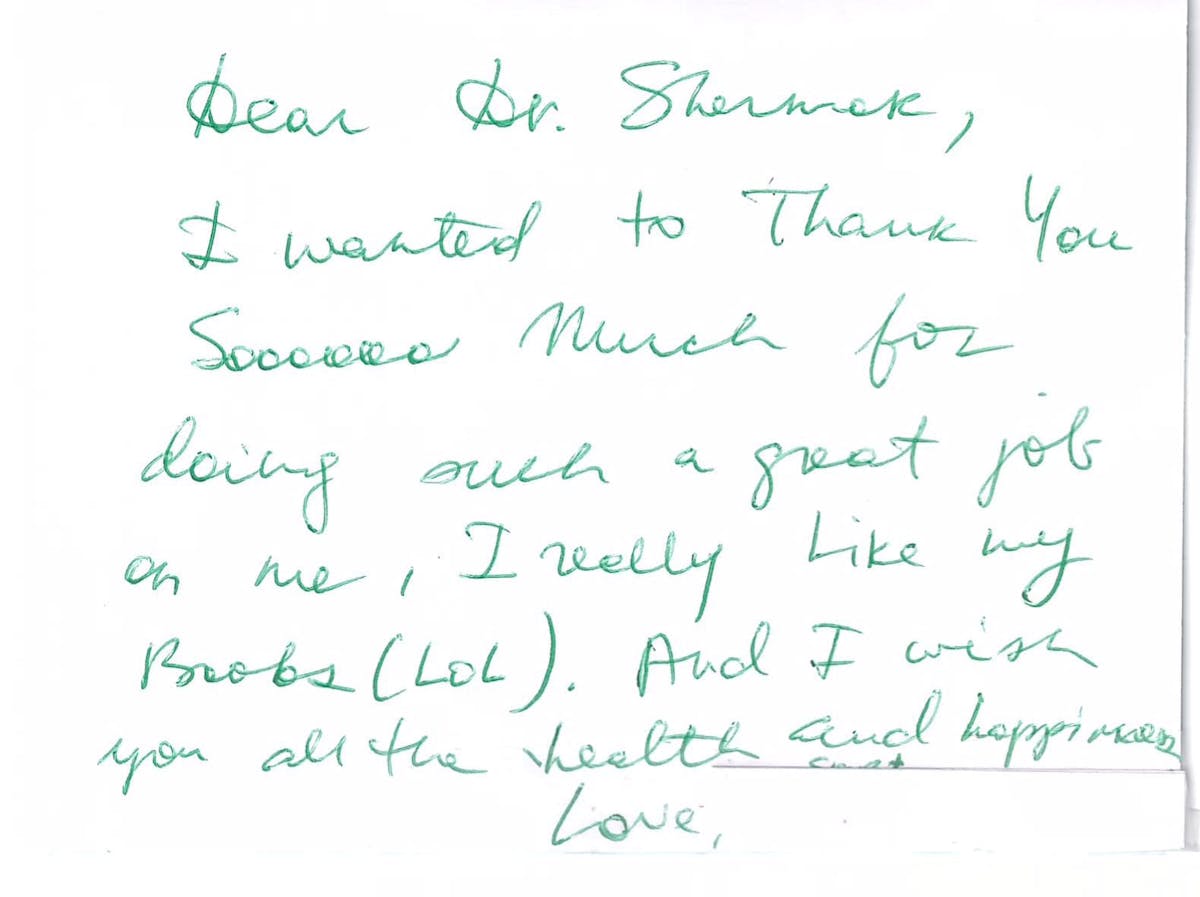 Dear Dr. Shermak,
I wanted to Thank You
Soooooo Much for
doing such a great job
on me, I really Like my
Boobs (LoL). And I wish
you all the health and happiness
Love,